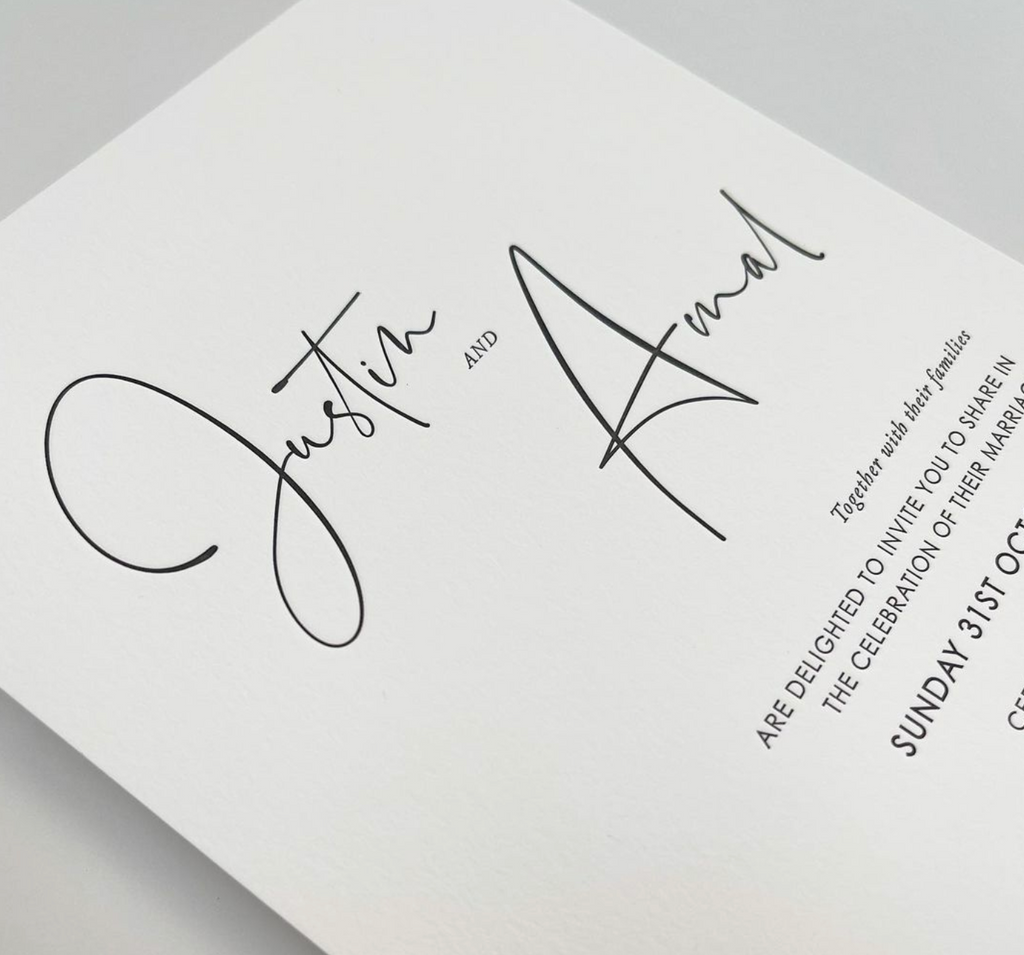 Justin
AND
Amal
Together with their families
ARE DELIGHTED TO INVITE YOU TO SHARE IN
THE CELEBRATION OF THEIR
SUNDAY 31ST